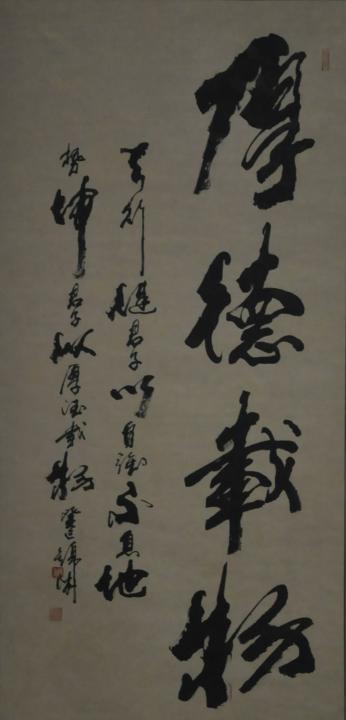 厚德載物
天行健君子以自強不息地
勢坤君子以厚德載物